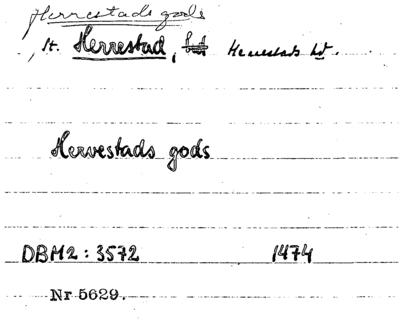 Herrestads gods
, St. Herrestad, Herrestads hd.
Hervestads gods
DBM2: 3572 1474
Nr 5629.